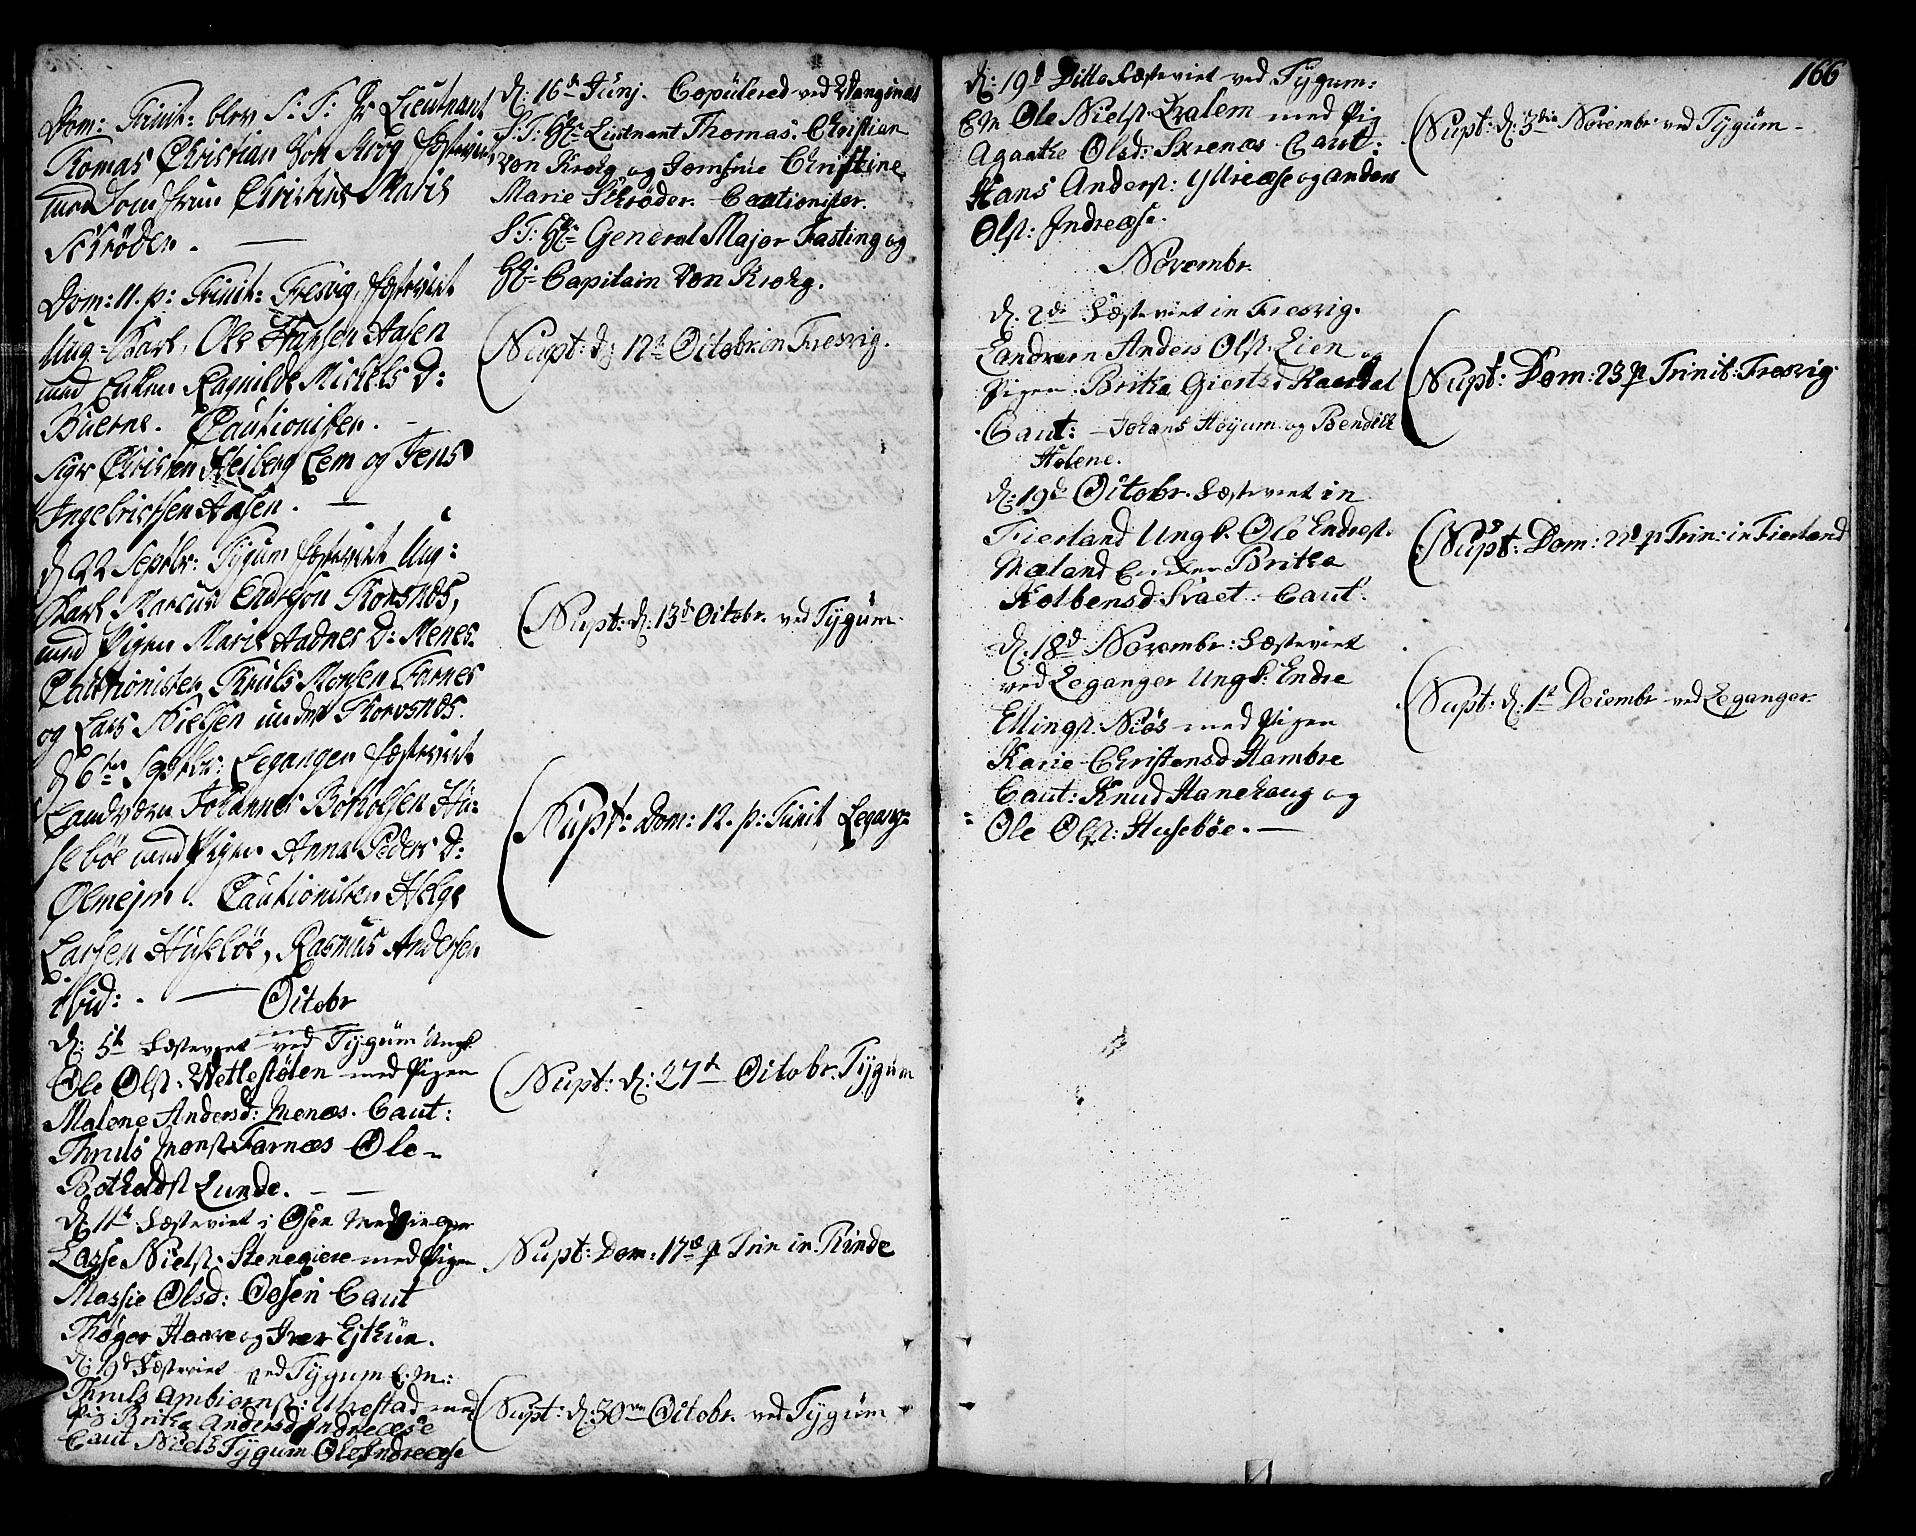 Dom: Trinit: blev S: T: Hr Lieutnant
Thomas Christian von Krog fæstevied
med Jomfrue Christine Marie
Schrøder.
Dom: 11. p: Trinit: Fresvig, fæstevirt
Ung-Karl, Ole Hansen Aasen
med Enken Ragnilde Michels D:
Buerne. Cautionister.
Sigr Christen Heiberg Lem og Jens
Ingebrictsen Aasen.
d 22 Septbr: Tygum fæstevirt Ung:
Karl Marcus Endresøn Thorsnæs,
med Pigen Marie Aadnes D: Menes.
Cautionister Thruls Monsen Farnes
og Lars Nielsen
d 6te Septbr: Leganger fæstevirt
Landværn Johannes Botholsen Hu:
sebøe med Pigen Anna Peders D:
Ølmejm. Cautionister Helge
Larsen Husebøe, Rasmus Andersen
ibid:.
Octobr
d: 5t Fæsteviet ved Tygum Ungk.
Ole Olss. Vettestølen med Pigen
Malene Andersd: Menæs. Caut:
Thruls Monss Farnæs Ole
Botholdss Lunde.
d: 11t Fæsteviet i Osen
Lasse Nielss. Stenegiere med Pigen
Massie Olsd: Oosen Caut
Thøger Haare og Iver Esthun.
d: 19d Fæsteviet ved Tygum E. M:
Thruls Ambiørnss: Ulvestad med
Pig Britha Andersd Indreæse
Caut Niels Tygum Ole Indreæse
d: 16d Junj. Copulered ved Vangsnæs
S: T: Hr Lieutnant Thomas Christian
von Krohg og Jomfrue Christine
Marie Schrøder. Cautionister.
S: T: Hr General Major Fasting og
Hr Capitain von Krohg.
Nupt: d: 12t Octobr: in Fresvig.
Nupt: d: 13d Octobr. ved Tygum.
Nupt: Dom: 12. p: Trinit Legang:
Nupt: d: 27d Octobr. Tygum
Nupt: Dom: 17d p Trin in Rinde
Nupt: d: 30 Octobr. ved Tygum
166
d: 19d Ditto Fæsteviet ved Tygum:
E. M Ole Nielss. Kvalem med Pig
Agaathe Olsd: Skrenæs. Caut:
Hans Anderss: Yttreæse og Anders
Olss: Indreæse.
Novembr.
d. 2de Fæsteviet in Fresvig.
Landværn Anders Olss. Lien og
Pigen Britha Giertsd Raardal
Caut: Johans Høyum og Bendick
Holene.
d: 19d Octobr. Fæsteviet in
Fierland Ungk. Ole Endress.
Mæland Enken Britha
Kolbensd. Svæet. Caut.
d. 18d Novembr: Fæsteviet
ved Leganger Ungk: Endre
Ellings. Niøs med Pigen
Karie Christensd Hambre
Caut: Knud Hanehaug og
Ole Olss: Husebøe.
Nupt: d: 3die Novembr ved Tygum
Nupt: Dom: 23 p Trinit: Fresvig
Nupt: Dom: 22d p Trin: in Fierland
Nupt: d: 1t Decembr ved Leganger.